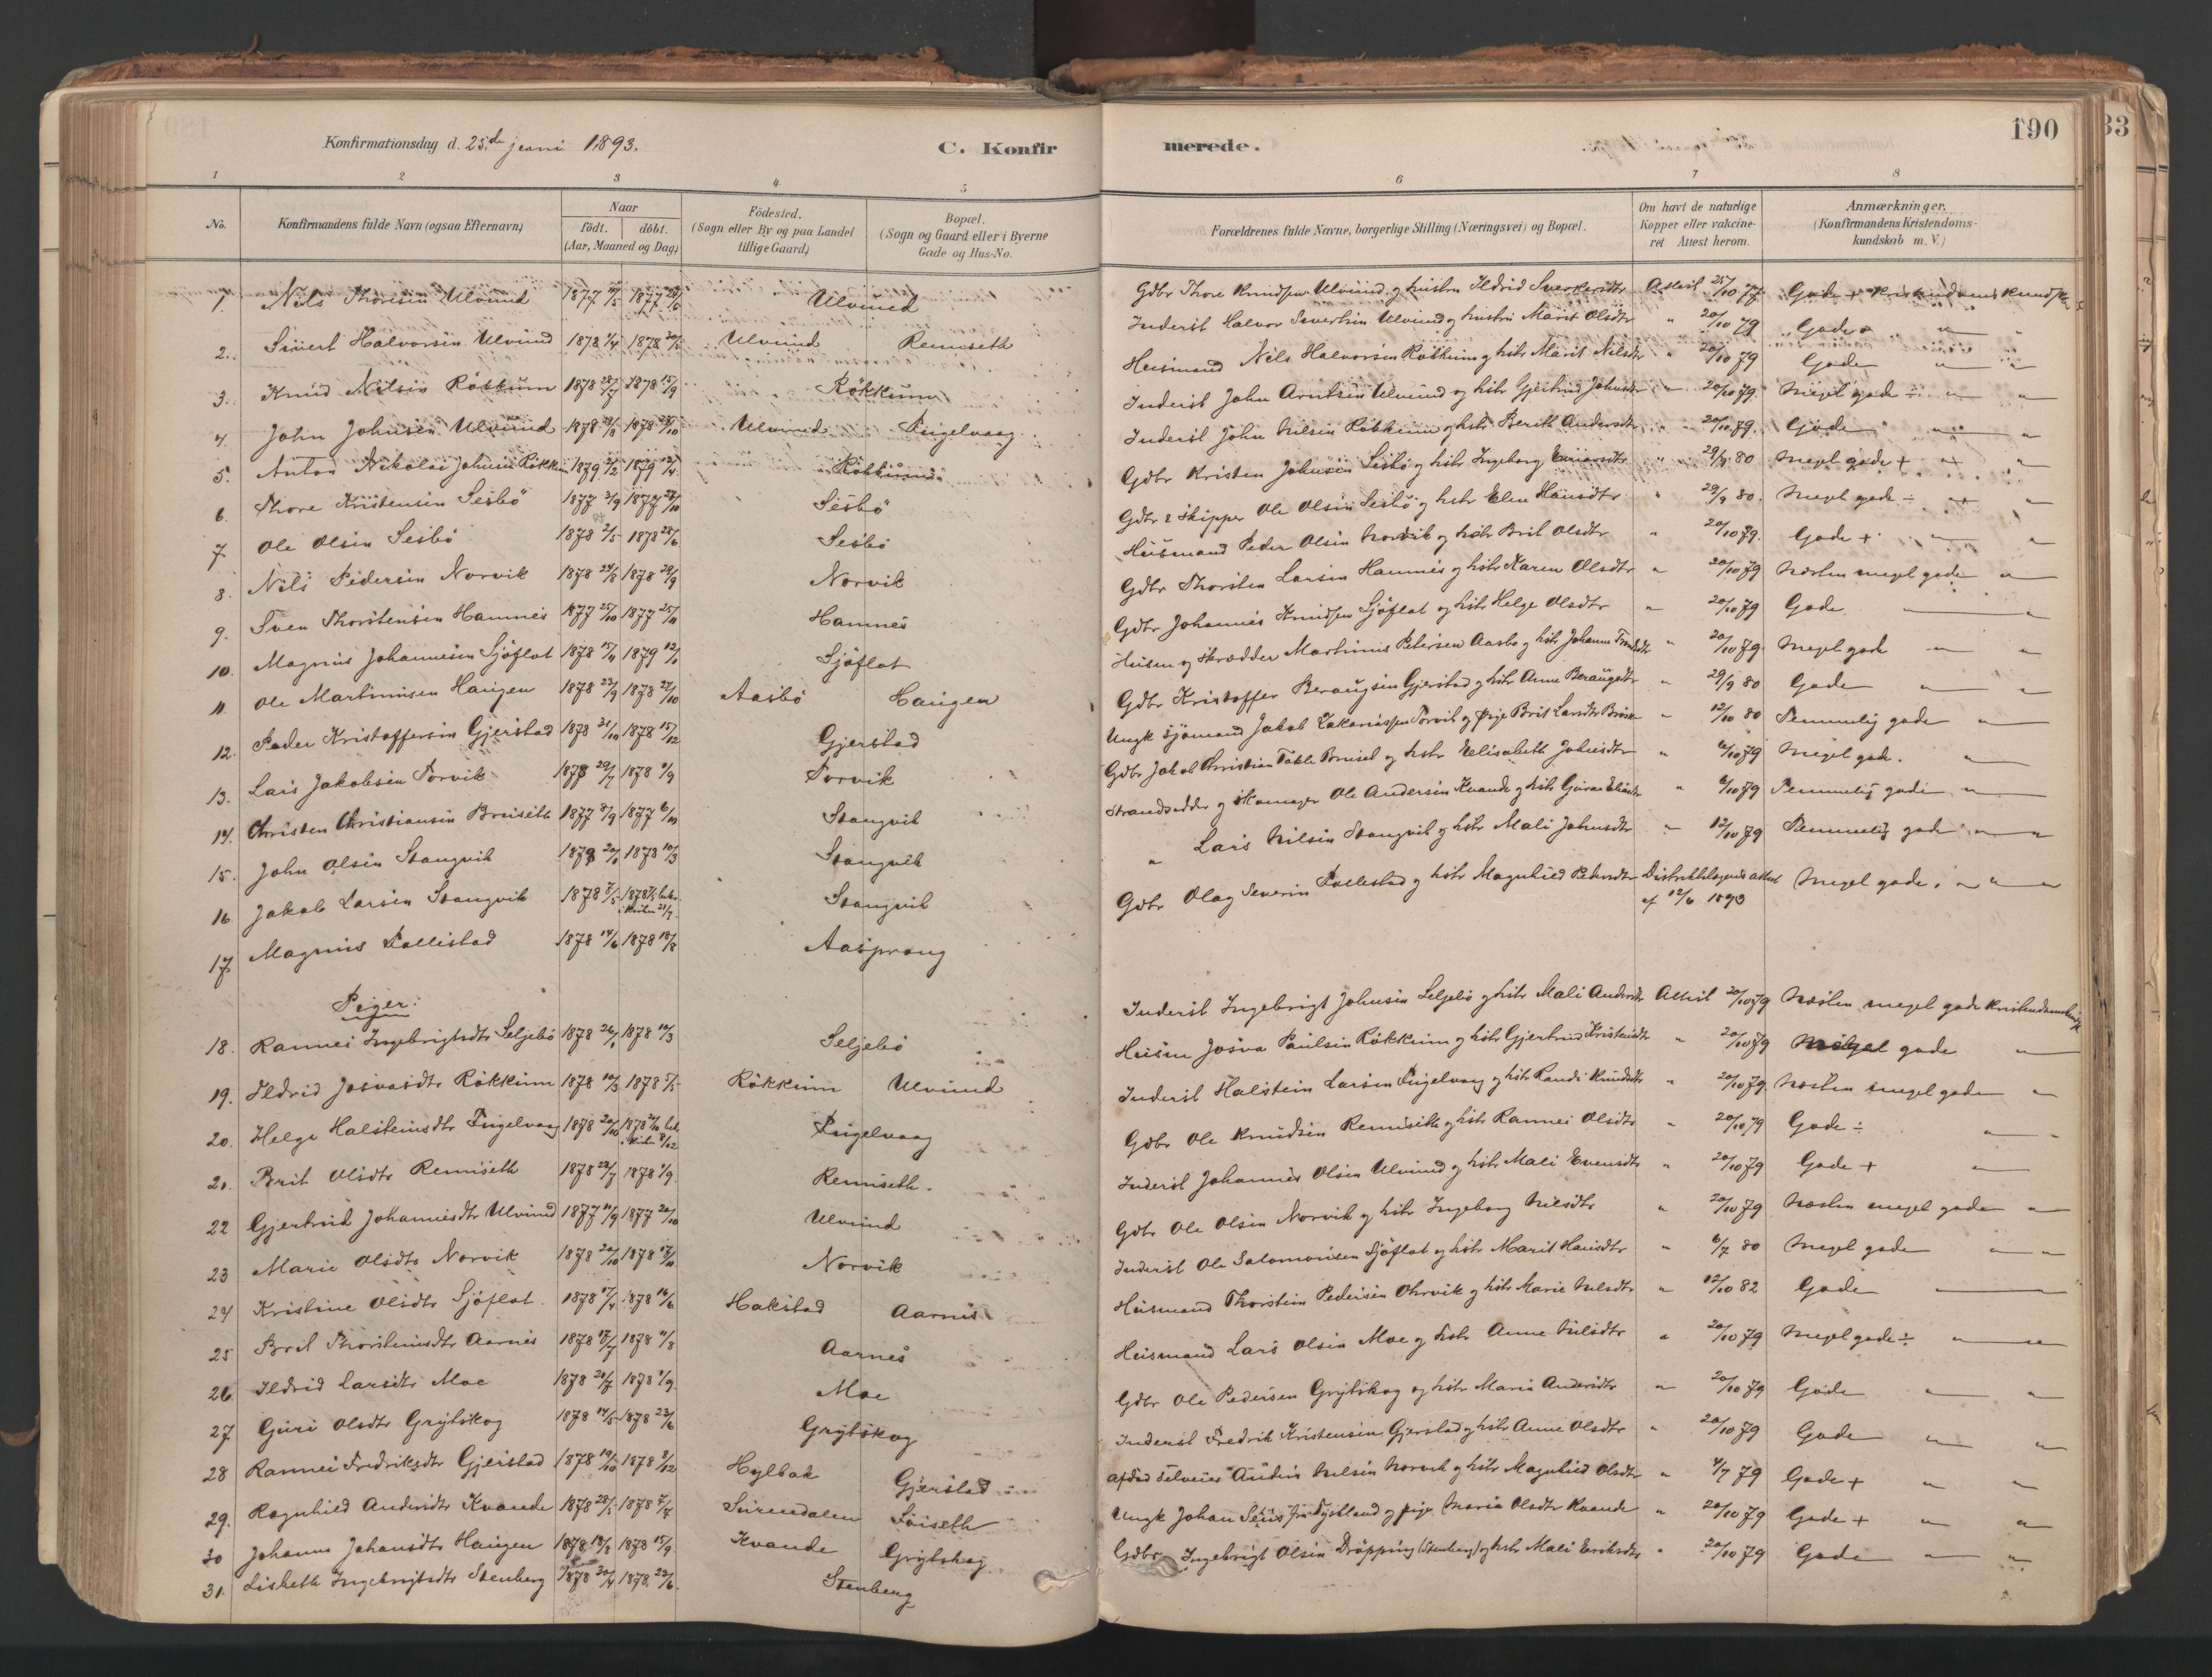 190
33
Konfirmationsdag d. 25.de juni 1893.
C. Konfir
merede.
1 2 3 4 5 6 7 8
No.
Konfirmandens fulde Navn (ogsaa Efternavn)
Naar
födt. döbt.
(Aar, Maaned og Dag)
Födested.
(Sogn eller By og paa Landet
tillige Gaard)
Bopæl.
(Sogn og Gaard eller i Byerne
Gade og Hus-No.
Forældrenes fulde Navne, borgerlige Stilling (Næringsvei) og Bopæl.
Om havt de naturlige
Kopper eller vakcine-
ret Attest herom.
Anmærkninger.
(Konfirmandens Kristendoms-
kundskab m. V.)
1. Nils Thoresen Ulvund 1877 1877 Ulvund Gdbr Thore Knudsen Ulvund og hustru Ildrid Sverkersdtr Attest 25/10 77 Gode + Kristendomskundsk
2. Sivert Halvorsen Ulvund 1878 1/4 1878 Ulvund Remseth Inderst Halvor Sivertsen Ulvund og hustru Marit Olsdtr " 20/10 79 Gode " "
3. Knud Nilsen Rökkum 1878 28/7 1878 15/9 Rökkum Husmand Nils Halvorsen Rökkum og hstr Marit Nilsdtr " 20/10 79 Gode " "
4. John Johnsen Ulvund 1878 1878 Ulvund Fugelvaag Inderst John Arntsen Ulvund og hstr Gjertrud Johnsdtr " 20/10 79 Meget gode ÷ " "
5. Anton Nikolai Johnsen Rökkum 1879 2/2 1879 12/4 Rökkum Inderst John Nilsen Rökkum og hstr Berith Andersdtr " 20/10 79. Gode " "
6. Thore Kristensen Sesbö 1877 3/9 1877 Sesbö Gdbr Kristen Johnsen Sesbö og hstr Ingeborg " 29/9 80 Meget gode + " "
7. Ole Olsen Sesbö 1878 2/5 1878 28/6 Sesbö Gdbr & Skipper Ole Olsen Sesbö og hstr Elen Hansdtr " 29/9 80. Meget gode ÷ " "
8. Nils Pedersen Norvik 1878 24/8 1878 29/9 Norvik Husmand Peder Olsen Norvik og hstr Brit Olsdtr " 20/10 79. Gode + " "
9. Sven Thorstensen Hamnes 1877 25/10 1877 25/11 Hamnes Gdbr Thorsten Larsen Hamnes og hstr Karen Olsdtr " 20/10 79 Næsten meget gode "
10. Magnus Johannesen Sjöflot 1878 17/11 1879 12/1 Sjöflot Gdbr Johannes Knudsen Sjöflot og hstr Helge Olsdtr " 20/10 79 Gode "
11. Ole Martinusen Haugen 1878 23/9 1878 27/10 Aasbö Haugen Husm og Skrædder Martinus Petersen Aasbö og hstr Johanna " 20/10 79. Meget gode " "
12. Peder Kristoffersen Gjerstad 1878 31/10 1878 15/12 Gjerstad Gdbr Kristoffer Beraugsen Gjerstad og hstr Anne Beraugsdtr " 29/9 80 Gode " "
13. Lars Jakobsen Torvik 1878 29/7 1878 1/9 Torvik Ungk Sjömand Jakob Zakariassen Torvik og Pige Brit Larsdtr " 12/10 80 Temmelig gode "
14. Christen Christiansen Bruseth 1877 8/9 1877 6/11 Stangvik Gdbr Jakob Christian Bruset og hstr Elisabeth Johnsdtr " 6/10 79 Meget gode. "
15. John Olsen Stangvik 1878 20/1 1878 10/3 Stangvik Strandsidder og Skomager Ole Andersen Kvande og hstr " 6/10 79 Temmelig gode "
16 Jakob Larsen Stangvik 1878 7/5 1878 Stangvik " Lars Nilsen Stangvik og hstr Mali Johnsdtr " 12/10 79 Temmelig gode " "
17. Magnus Tallestad 1878 14/6 1878 18/8 Aasprong Gdbr Olag Severin Tallestad og hstr Magnhild Pedersdtr Distriktslægens attest Meget gode. " " "
af 12/6 1893
Piger:
18. Rannei Ingebrigtsdtr Seljebö 1878 26/1 1878 10/3 Seljebö Inderst Ingebrigt Johnsen Seljebö og hstr Mali Andersdtr Attest 20/10 79 Næsten meget gode
19. Ildrid Josvasdtr Rökkum 1878 10/3 1878 5/5 Rökkum Ulvund Husm Josva Paulsen Rökkum og hstr Gjertrud Kristensdtr " 20/10 79 Meget gode "
20. Helge Halsteinsdtr Fugelvaag 1878 1878 Fugelvaag Inderst Halstein Larsen Fugelvaag og hstr Randi Knudsdtr " 20/10 79. Næsten meget gode "
21. Brit Olsdtr Remseth 1878 28/7 1878 1/9. Remseth. Gdbr Ole Knudsen Remseth og hstr Rannei Olsdtr " 20/10 79 Gode ÷ "
22 Gjertrud Johannesdtr Ulvund 1877 11/9 1877 20/10 Ulvund Inderst Johannes Olsen Ulvund og hstr Mali Evensdtr " 20/10 79 Gode + "
23 Marie Olsdtr Norvik 1878 20/10 1878 17/11 Norvik Gdbr Ole Olsen Norvik og hstr Ingeborg Nilsdtr " 20/10 79 Næsten meget gode "
24 Kristine Olsdtr Sjöflot. 1878 17/4 1878 16/6 Hakstad Aarnes Inderst Ole Salomonsen Sjöflot og hstr Marit Hansdtr " 6/7 80 Meget gode " "
25 Brit Thorsteinsdtr Aarnes 1878 17/7 1878 11/8 Aarnes Husmand Thorstein Pedersen Ohrvik og hstr Marie Nilsdtr " 12/10 82 Gode "
26 Ildrid Larsdtr Moe 1878 20/7 1878 1/9. Moe Husmand Lars Olsen Moe og hstr Anne Nilsdtr " 20/10 79 Meget gode ÷ " "
27. Guri Olsdtr Grytskog 1878 14/5 1878 23/6 Grytskog Gdbr Ole Pedersen Grytskog og hstr Maria Andersdtr " 20/10 79 Gode " "
28 Rannei Fredriksdtr Gjerstad 1878 19/10 1878 8/12 Hylbak Gjerstad Inderst Fredrik Kristensen Gjerstad og hstr Anne Olsdtr " 20/10 79 Gode " "
29. Ragnhild Andersdtr Kvande 1878 28/5 1878 7/7 Surendalen Söiseth Anders Nilsen og hstr Magnhild Olsdtr " 4/7 79 Gode + " "
30 Johanna Johansdtr Haugen 1878 18/8 1878 15/9. Kvande Grytskog Ungk Johan og pige Maria Olsdtr Kvande " 20/10 79 Gode + " "
31. Lisbeth Ingebrigtsdtr Stenberg 1878 30/4 1878. 23/6. Stenberg Gdbr Ingebrigt Olsen Dröpping (Stenberg) og hstr Mali Eriksdtr " 20/10 79 Gode " "